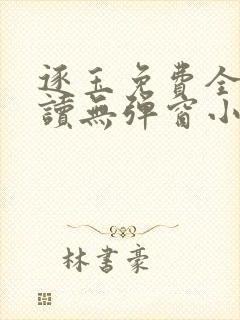 逐玉免費全
讀無彈窗小
林書豪